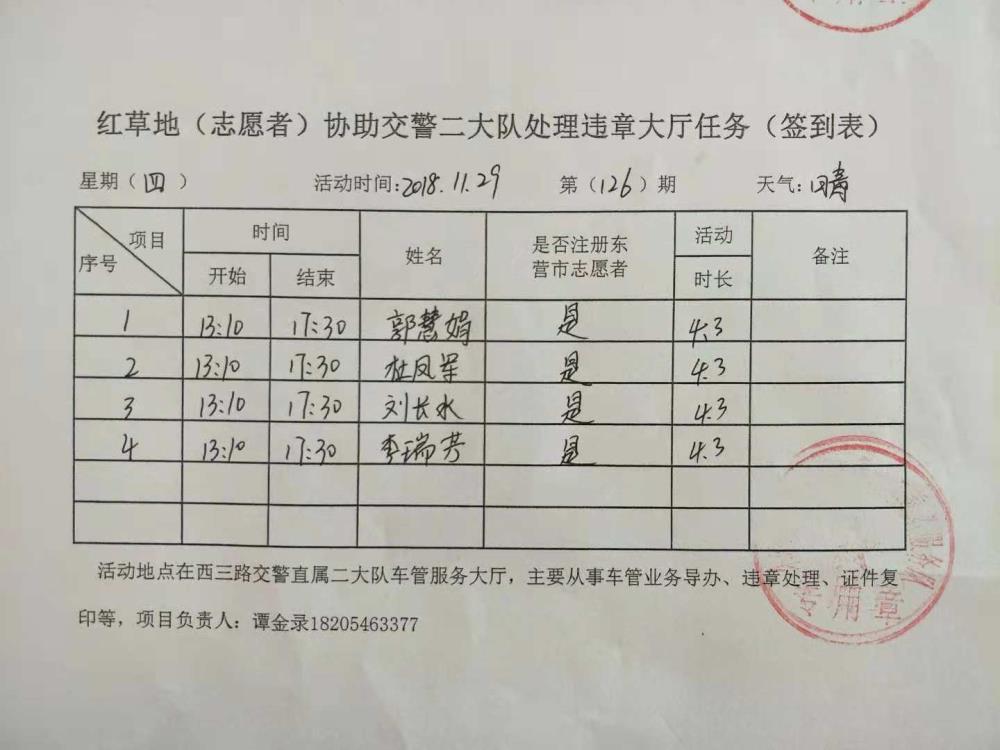 红草地（志愿者）协助交警二大队处理违章大厅任务（签到表）
星期（四） 活动时间:2018.11.29 第（126）期 天气:晴
项目 序号 时间 姓名 是否注册东营市志愿者 活动时长 备注
开始 结束
1 13:10 17:30 郭慧娟 是 4.3
2 13:10 17:30 杜凤军 是 4.3
3 13:10 17:30 刘长水 是 4.3
4 13:10 17:30 李瑞芳 是 4.3
活动地点在西三路交警直属二大队车管服务大厅，主要从事车管业务导办、违章处理、证件复
印等，项目负责人：谭金录18205463377
专用章